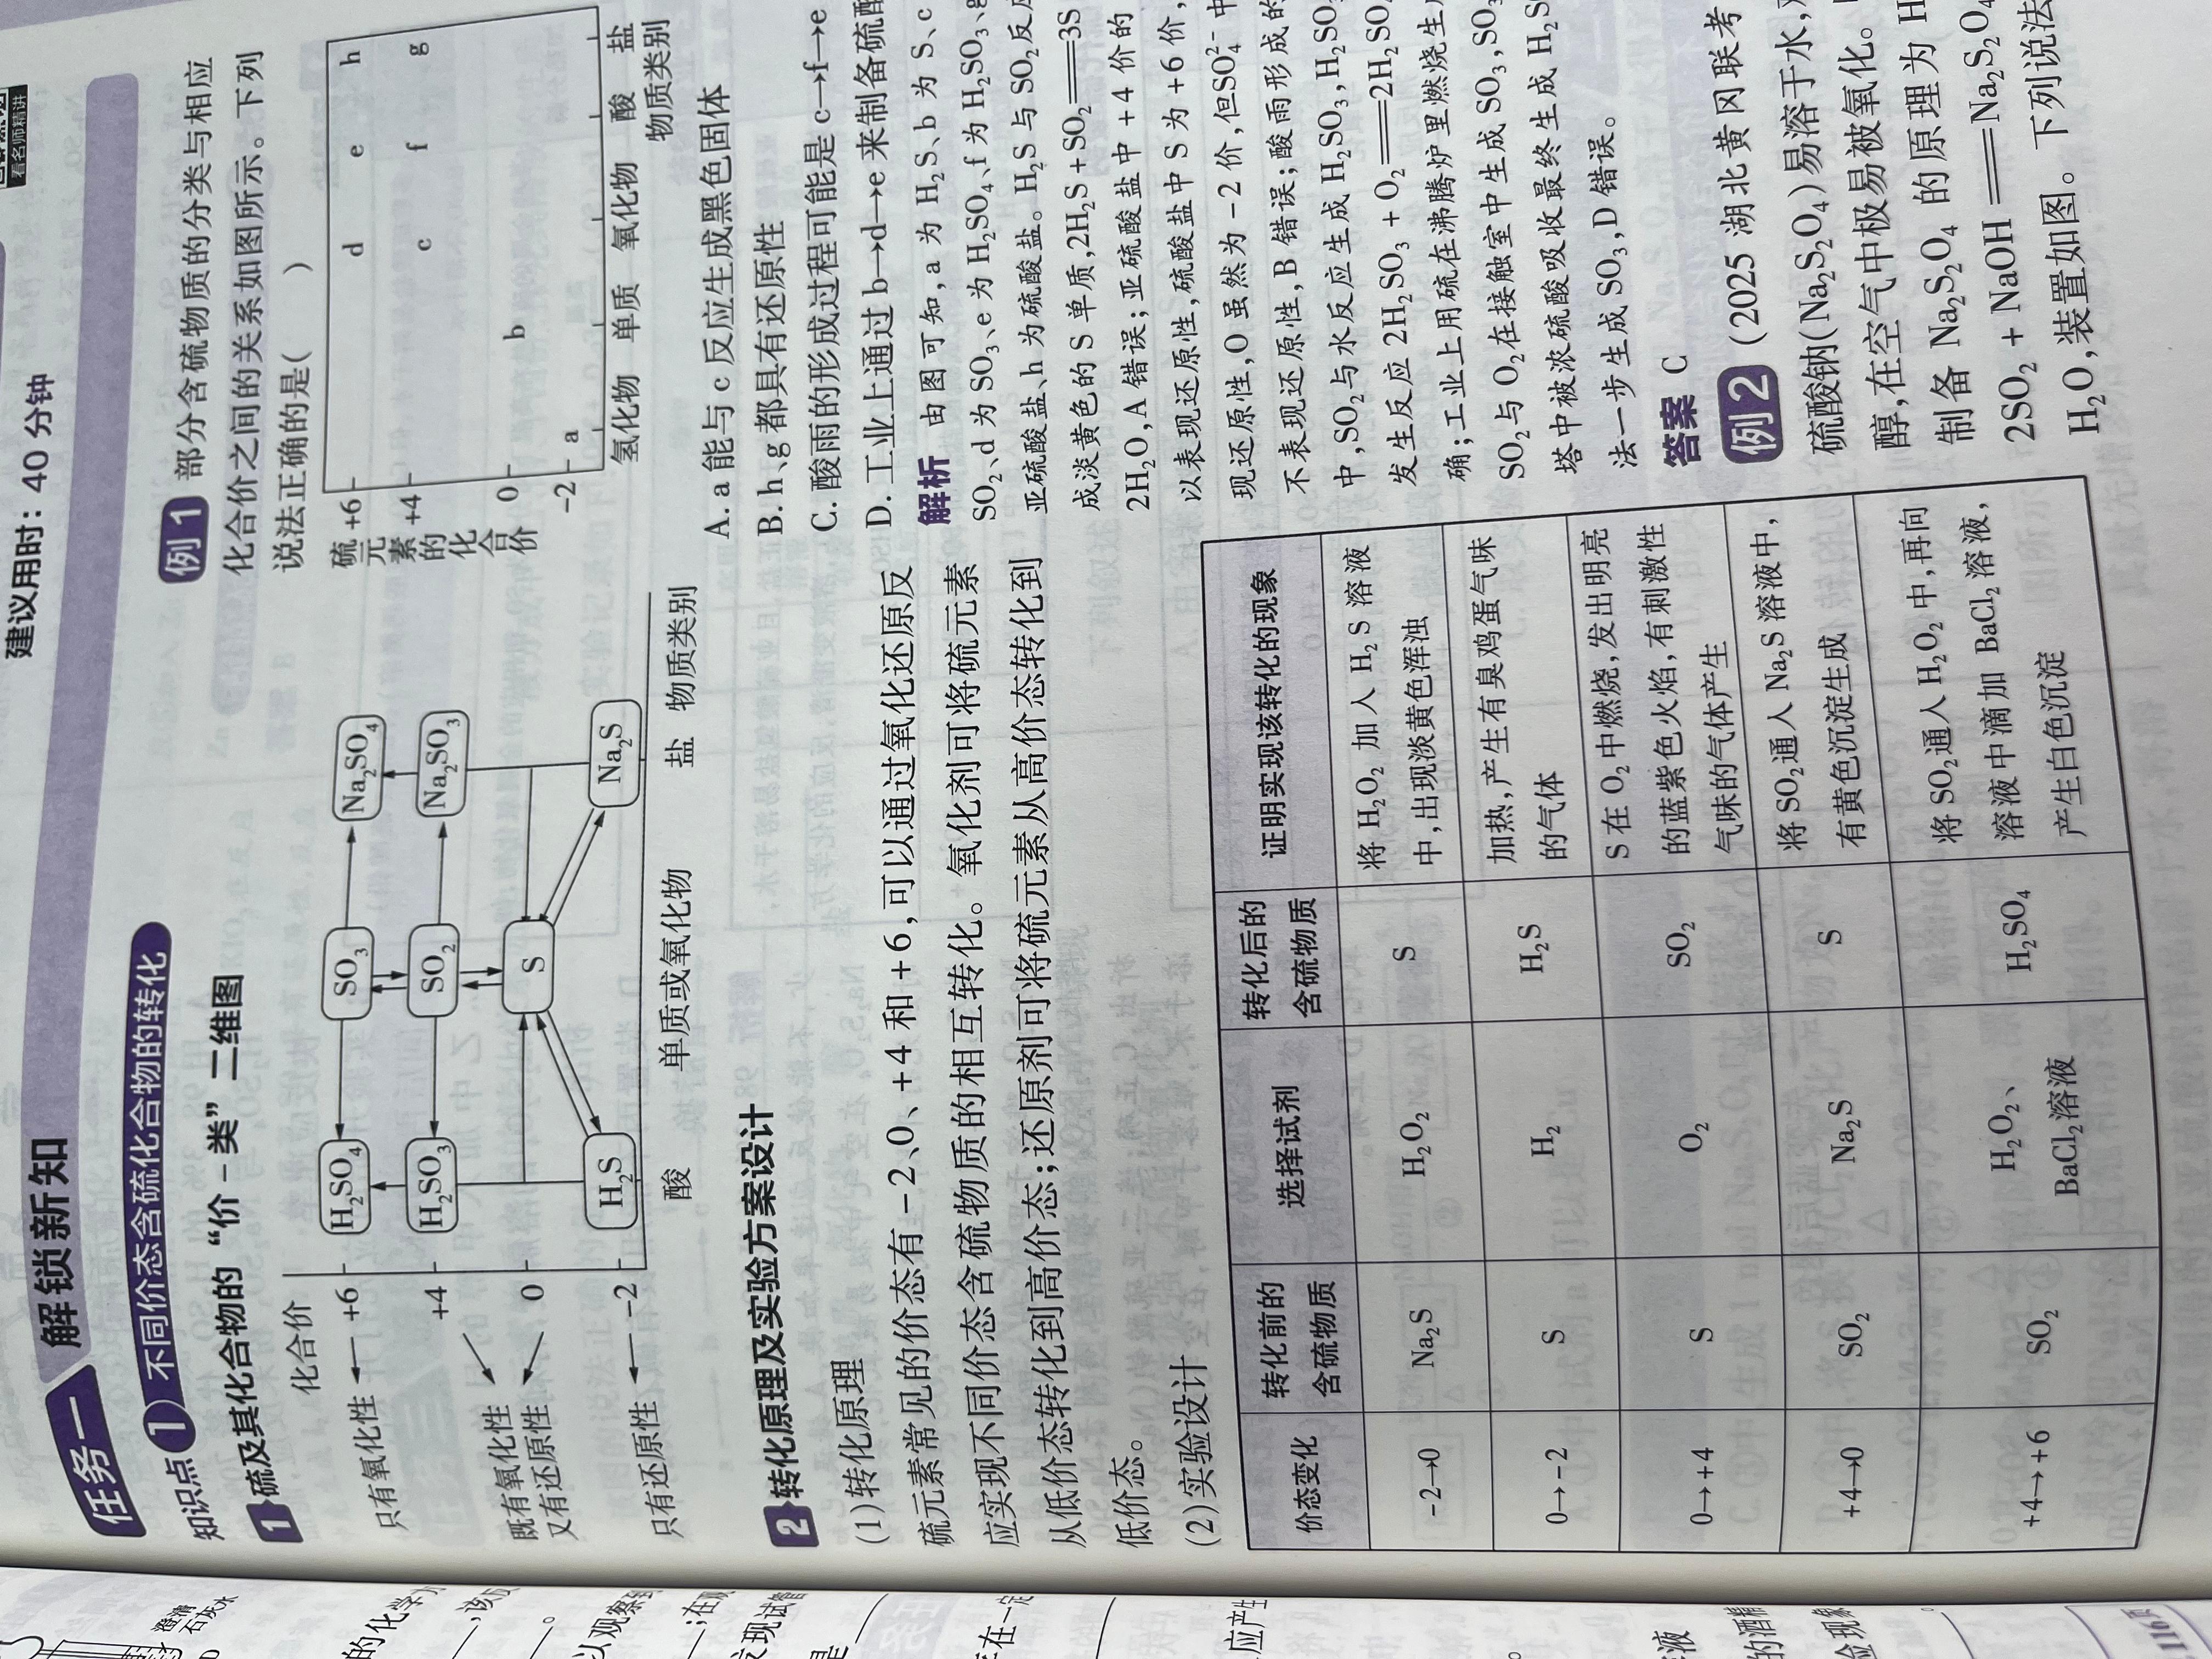 建议用时：40 分钟
看名师精讲
任务一 解锁新知
知识点1 不同价态含硫化合物的转化
1 硫及其化合物的“价－类”二维图
化合价
只有氧化性 +6 H₂SO₄ SO₃ Na₂SO₄
+4 H₂SO₃ SO₂ Na₂SO₃
既有氧化性
又有还原性
0 S
只有还原性 -2 H₂S Na₂S
酸 单质或氧化物 盐 物质类别
2 转化原理及实验方案设计
(1)转化原理
硫元素常见的价态有-2、0、+4 和+6,可以通过氧化还原反
应实现不同价态含硫物质的相互转化。氧化剂可将硫元素
从低价态转化到高价态;还原剂可将硫元素从高价态转化到
低价态。
(2)实验设计
价态变化 转化前的含硫物质 选择试剂 转化后的含硫物质 证明实现该转化的现象
-2→0 Na₂S H₂O₂ S 将 H₂O₂ 加入 H₂S 溶液
中,出现淡黄色浑浊
0→-2 S H₂ H₂S 加热,产生有臭鸡蛋气味
的气体
0→+4 S O₂ SO₂ S 在 O₂ 中燃烧,发出明亮
的蓝紫色火焰,有刺激性
气味的气体产生
+4→0 SO₂ Na₂S S 将 SO₂通入 Na₂S 溶液中,
有黄色沉淀生成
+4→+6 SO₂ H₂O₂、
BaCl₂溶液 H₂SO₄ 将 SO₂通入 H₂O₂ 中,再向
溶液中滴加 BaCl₂ 溶液,
产生白色沉淀
例1 部分含硫物质的分类与相应
化合价之间的关系如图所示。下列
说法正确的是( )
硫元素的化合价
+6 d e h
+4 c f g
0 b
-2 a
氢化物 单质 氧化物 酸 盐
物质类别
A. a 能与 c 反应生成黑色固体
B. h、g 都具有还原性
C. 酸雨的形成过程可能是 c→f→e
D. 工业上通过 b→d→e 来制备硫酸
解析 由图可知,a 为 H₂S、b 为 S、c
SO₂、d 为 SO₃、e 为 H₂SO₄、f 为 H₂SO₃、g
亚硫酸盐、h 为硫酸盐。H₂S 与 SO₂反应
成淡黄色的 S 单质,2H₂S + SO₂══3S
2H₂O,A 错误;亚硫酸盐中 +4 价的
以表现还原性,硫酸盐中 S 为 +6 价,
现还原性,O 虽然为 -2 价,但SO₄²⁻ 中
不表现还原性,B 错误;酸雨形成的
中,SO₂与水反应生成 H₂SO₃,H₂SO₃
发生反应 2H₂SO₃ + O₂══2H₂SO₄
确;工业上用硫在沸腾炉里燃烧生
SO₂与 O₂在接触室中生成 SO₃,SO₃
塔中被浓硫酸吸收最终生成 H₂SO
法一步生成 SO₃,D 错误。
答案 C
例2 (2025 湖北黄冈联考
硫酸钠(Na₂S₂O₄)易溶于水,
醇,在空气中极易被氧化。
制备 Na₂S₂O₄ 的原理为 H
2SO₂ + NaOH══Na₂S₂O₄
H₂O,装置如图。下列说法
澄清
石灰水
的化学方
以观察到
发现试管
是
在一定
应产生
液
的酒精
验现象
116页